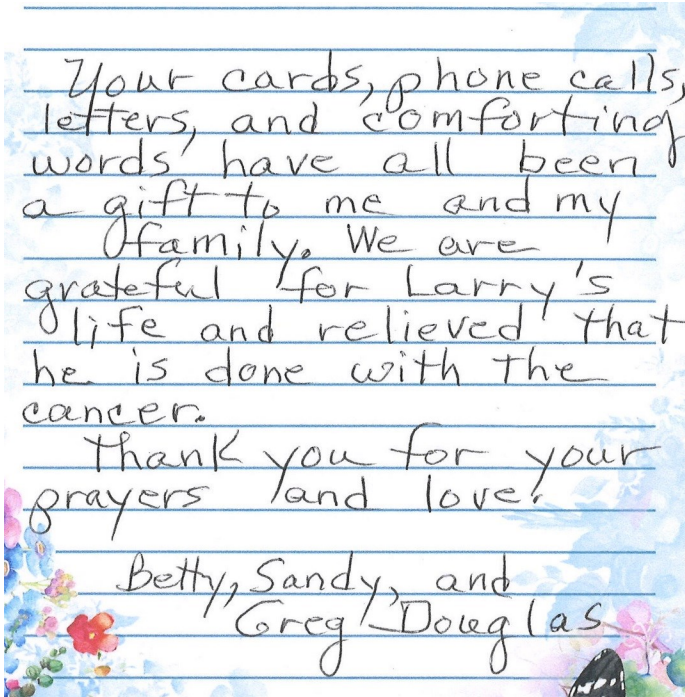 Your cards, phone calls,
letters, and comforting
words have all been
a gift to me and my
family. We are
grateful for Larry's
life and relieved that
he is done with the
cancer.
Thank you for your
prayers and love.
Betty, Sandy, and
Greg Douglas